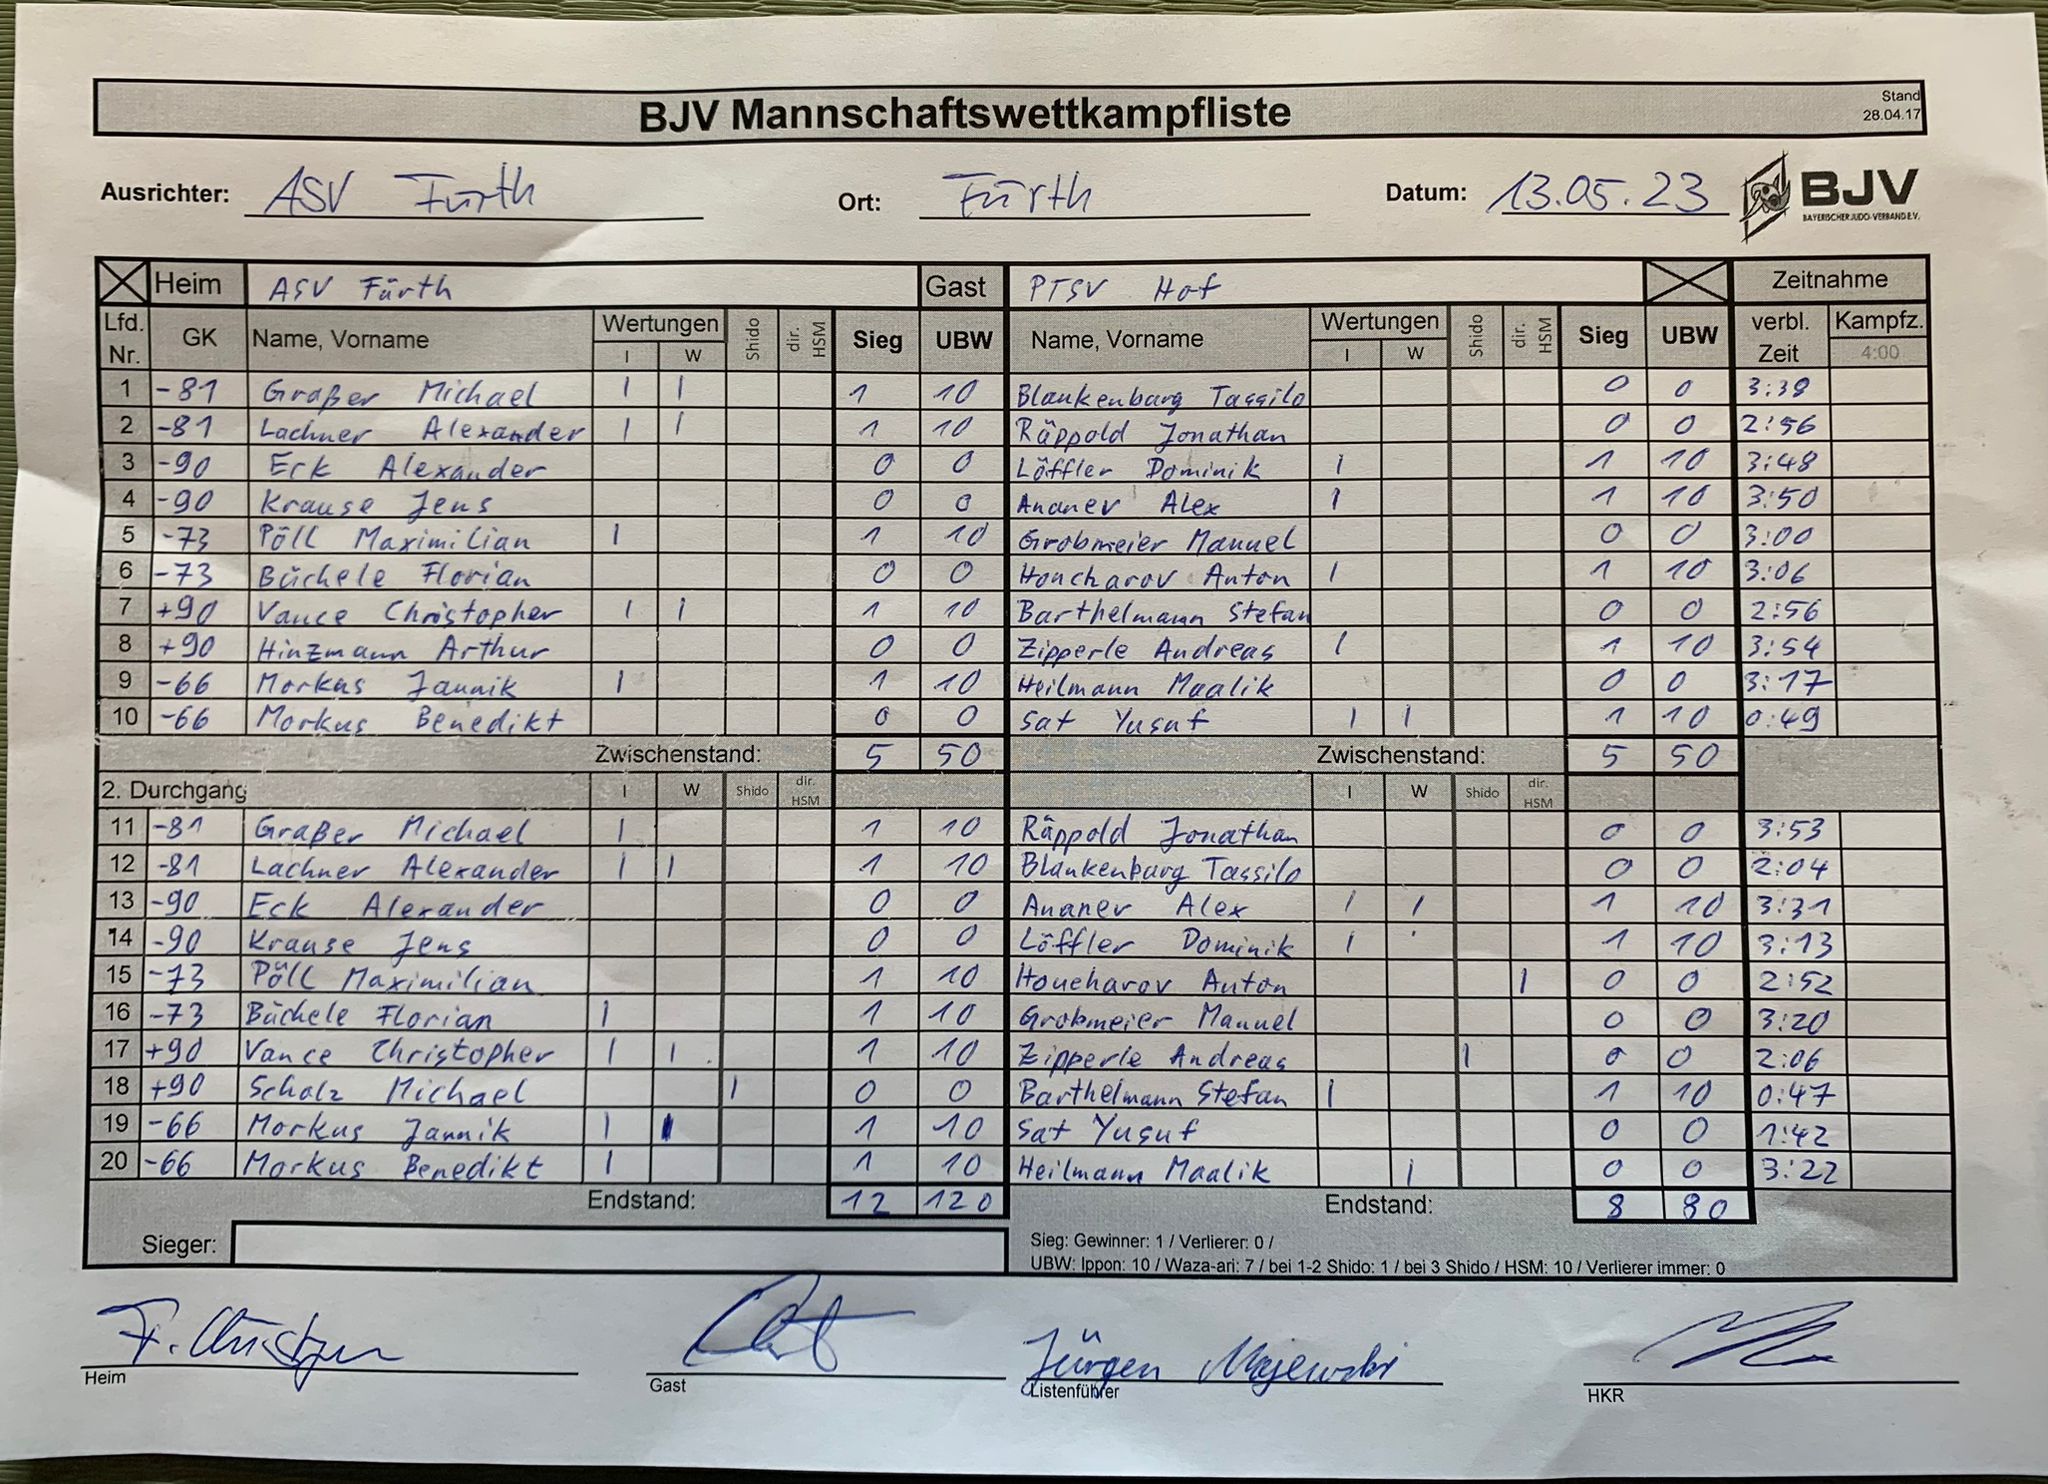 BJV Mannschaftswettkampfliste
Stand
28.04.17
Ausrichter: ASV Fürth Ort: Fürth Datum: 13.05.23
BJV
BAYERISCHER JUDO-VERBAND E.V.
Heim ASV Fürth Gast PTSV Hof Zeitnahme
Lfd. Nr. GK Name, Vorname Wertungen I W Shido dir. HSM Sieg UBW Name, Vorname Wertungen I W Shido dir. HSM Sieg UBW verbl. Zeit Kampfz. 4:00
1 -81 Graßer Michael I I 1 10 Blankenburg Tassilo 0 0 3:39
2 -81 Lachner Alexander I I 1 10 Räppold Jonathan 0 0 2:56
3 -90 Eck Alexander 0 0 Löffler Dominik I 1 10 3:48
4 -90 Krause Jens 0 0 Ananev Alex I 1 10 3:50
5 -73 Pöll Maximilian I 1 10 Grobmeier Manuel 0 0 3:00
6 -73 Büchele Florian 0 0 Honcharov Anton I 1 10 3:06
7 +90 Vance Christopher I I 1 10 Barthelmann Stefan 0 0 2:56
8 +90 Hinzmann Arthur 0 0 Zipperle Andreas I 1 10 3:54
9 -66 Morkus Jannik I 1 10 Heilmann Maalik 0 0 3:17
10 -66 Morkus Benedikt 0 0 Sat Yusuf I I 1 10 0:49
Zwischenstand: 5 50 Zwischenstand: 5 50
2. Durchgang I W Shido dir. HSM I W Shido dir. HSM
11 -81 Graßer Michael I 1 10 Räppold Jonathan 0 0 3:53
12 -81 Lachner Alexander I I 1 10 Blankenburg Tassilo 0 0 2:04
13 -90 Eck Alexander 0 0 Ananev Alex I I 1 10 3:31
14 -90 Krause Jens 0 0 Löffler Dominik I 1 10 3:13
15 -73 Pöll Maximilian 1 10 Honcharov Anton I 0 0 2:52
16 -73 Büchele Florian I 1 10 Grobmeier Manuel 0 0 3:20
17 +90 Vance Christopher I I 1 10 Zipperle Andreas I 0 0 2:06
18 +90 Scholz Michael I 0 0 Barthelmann Stefan I 1 10 0:47
19 -66 Morkus Jannik I I 1 10 Sat Yusuf 0 0 1:42
20 -66 Morkus Benedikt I 1 10 Heilmann Maalik I 0 0 3:22
Endstand: 12 120 Endstand: 8 80
Sieger:
Sieg: Gewinner: 1 / Verlierer: 0 /
UBW: Ippon: 10 / Waza-ari: 7 / bei 1-2 Shido: 1 / bei 3 Shido / HSM: 10 / Verlierer immer: 0
Jürgen Majewski
Heim Gast Listenführer HKR